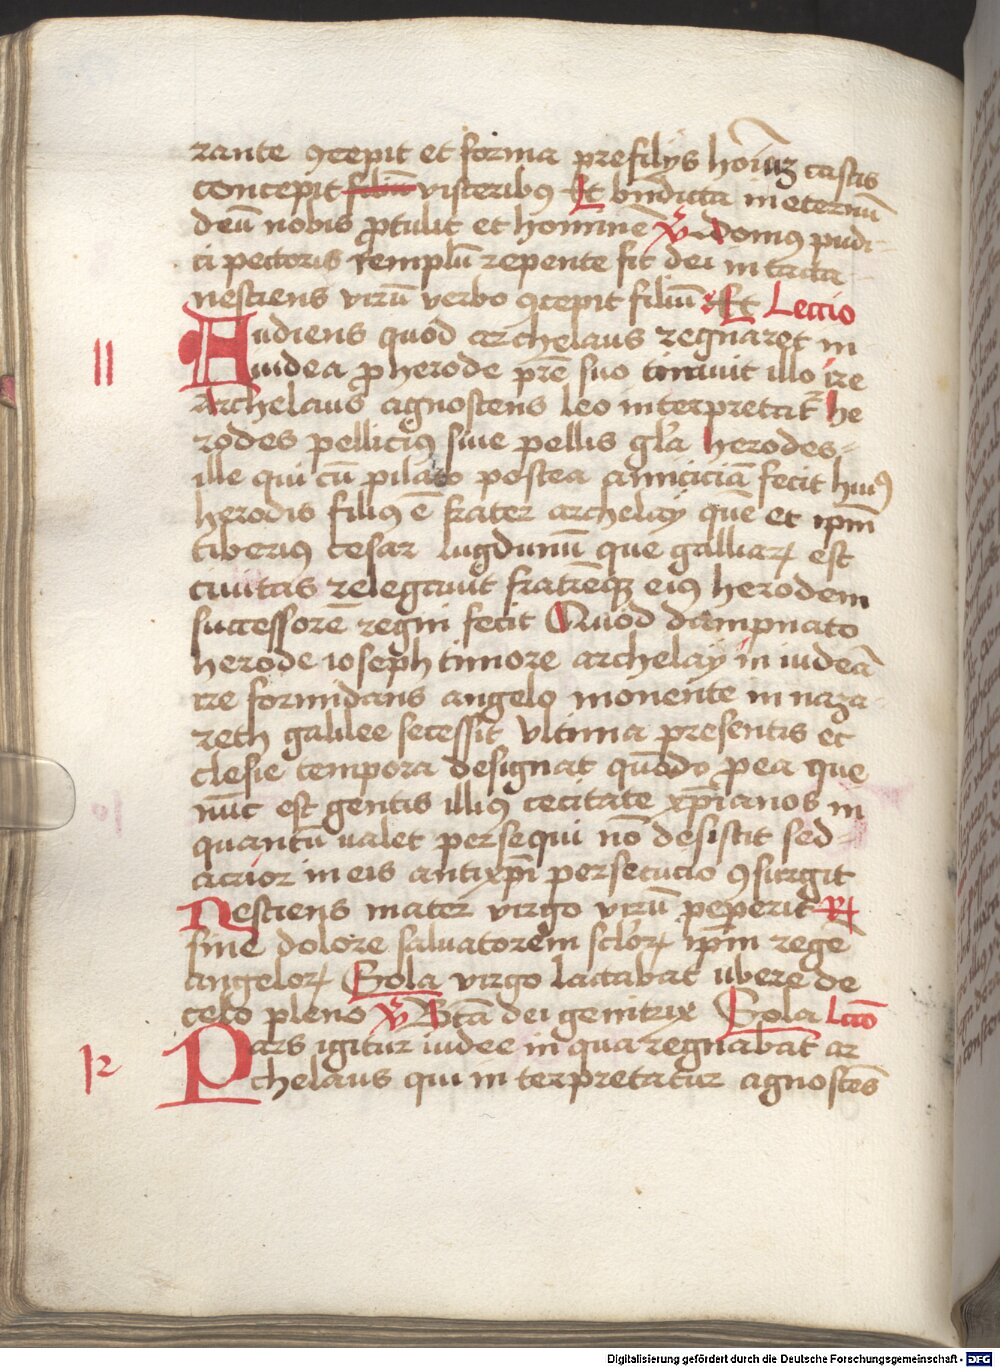 rante ꝯcepit et forma pre filijs hoīuꝫ castis
concepit filiū visceribꝰ Et bn̄dicta in eternū
deū nobis ꝓtulit et hominē V̄ Domꝰ pudi-
ci pectoris templū repente fit dei intacta
nesciens virū verbo ꝯcepit filiū Et Leccio
Audiens quod archelaus regnaret in
11
iudea ꝓ herode prē suo timuit illo ire
Archelaus agnoscens leo interpretat᷑ he
rodes pellicius siue pellis gl'a herodes
ille qui cū pilato postea amiciciā fecit huiꝰ
herodis filiꝰ ē frater archelay quē et ip̄m
tiberiꝰ cesar lugdunū que galliaꝝ est
ciuitas relegauit fratrēqꝫ eiꝰ herodem
successorē regni fecit Quod dampnato
herode ioseph timore archelay in iudeā
ire formidans angelo monente in naza
reth galilee secessit vltima presentis ec
clesie tempora designat quādo ꝓ ea que
nūc est gentis illiꝰ cecitate xp̄ianos in
quantū valet persequi nō desistit sed
acrior in eis antixp̄i persecucio ꝯsurgit
Nesciens mater virgo virū peperit R
sine dolore saluatorem scl'oꝝ ip̄m regē
angeloꝝ Sola virgo lactabat vbere de
celo pleno V̄ Bt̄a dei genitrix Sola Lc̄io
12
Pars igitur iudee in qua regnabat ar
chelaus qui interpretatur agnoscēs
Digitalisierung gefördert durch die Deutsche Forschungsgemeinschaft - DFG